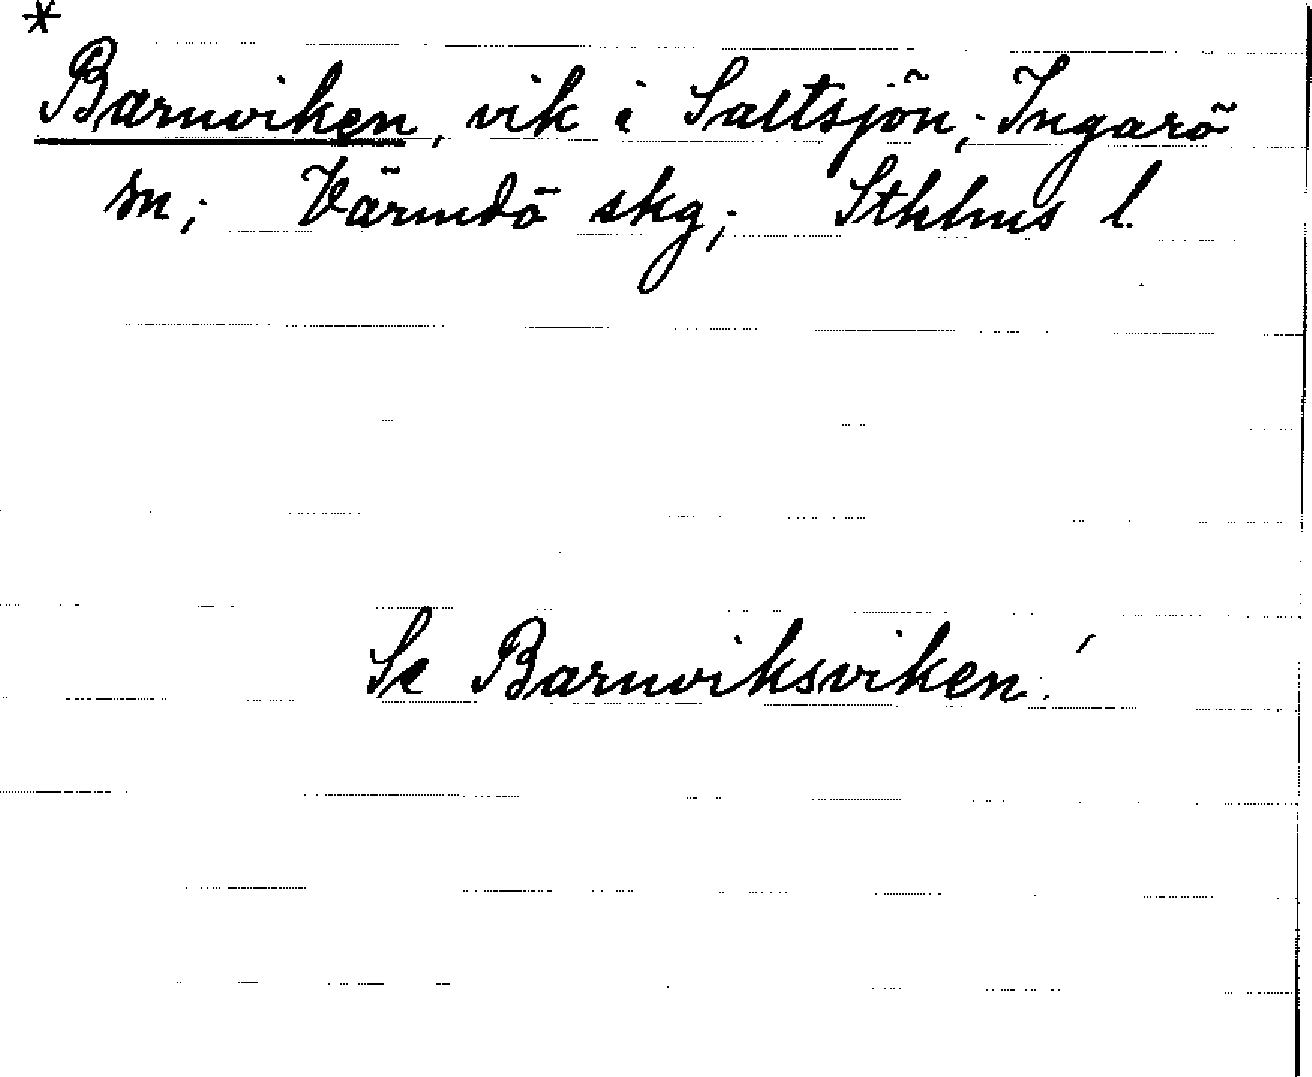 *
Barnviken, vik i Saltsjön; Ingarö
sn; Värmdö skg; Sthlms l.
Se Barnviksviken!